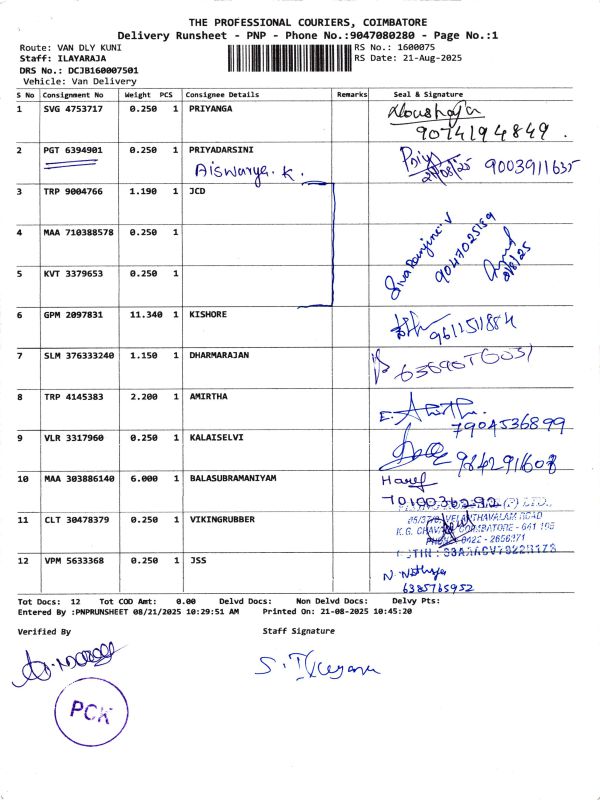 THE PROFESSIONAL COURIERS, COIMBATORE
Delivery Runsheet - PNP - Phone No.:9047080280 - Page No.:1
Route: VAN DLY KUNI RS No.: 1600075
Staff: ILAYARAJA RS Date: 21-Aug-2025
DRS No.: DCJB160007501
Vehicle: Van Delivery
S No Consignment No Weight PCS Consignee Details Remarks Seal & Signature
1 SVG 4753717 0.250 1 PRIYANGA
9074194849.
2 PGT 6394901 0.250 1 PRIYADARSINI Priya
Aiswarya. K. 21/08/25 9003911635
3 TRP 9004766 1.190 1 JCD
4 MAA 710388578 0.250 1
9047025189
5 KVT 3379653 0.250 1
6 GPM 2097831 11.340 1 KISHORE
9611511884
7 SLM 376333240 1.150 1 DHARMARAJAN
8 TRP 4145383 2.200 1 AMIRTHA
7904536899
9 VLR 3317960 0.250 1 KALAISELVI
9842911608
10 MAA 303886140 6.000 1 BALASUBRAMANIYAM
11 CLT 30478379 0.250 1 VIKINGRUBBER
COIMBATORE - 641 105
12 VPM 5633368 0.250 1 JSS
N. Nithya
6385765952
Tot Docs: 12 Tot COD Amt: 0.00 Delvd Docs: Non Delvd Docs: Delvy Pts:
Entered By :PNPRUNSHEET 08/21/2025 10:29:51 AM Printed On: 21-08-2025 10:45:20
Verified By Staff Signature
PCK